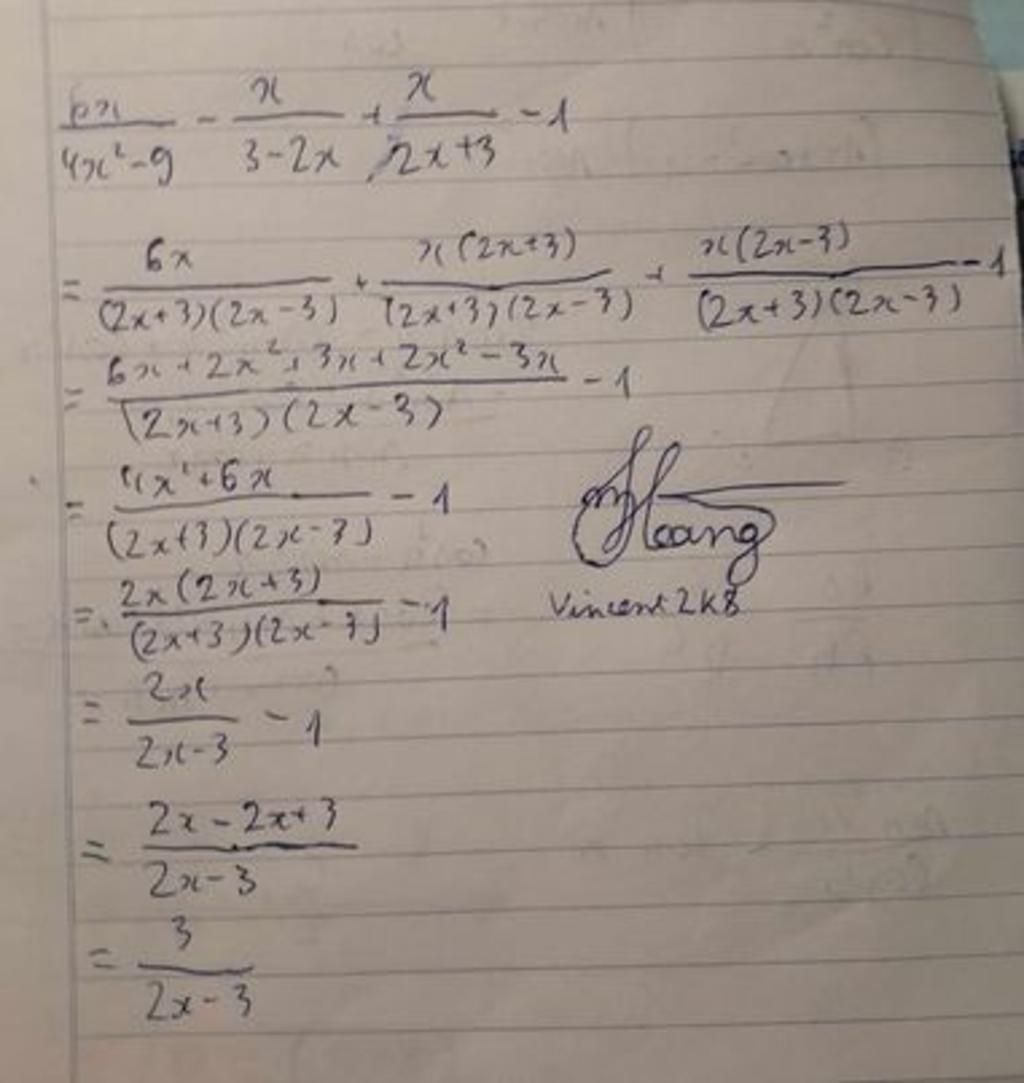 6x/(4x²-9) - x/(3-2x) + x/(2x+3) - 1
= 6x/((2x+3)(2x-3)) + x(2x+3)/((2x+3)(2x-3)) + x(2x-3)/((2x+3)(2x-3)) - 1
= (6x+2x²+3x+2x²-3x)/((2x+3)(2x-3)) - 1
= (4x²+6x)/((2x+3)(2x-3)) - 1
= 2x(2x+3)/((2x+3)(2x-3)) - 1
= 2x/(2x-3) - 1
= (2x-2x+3)/(2x-3)
= 3/(2x-3)
Hoang
Vincent 2k8